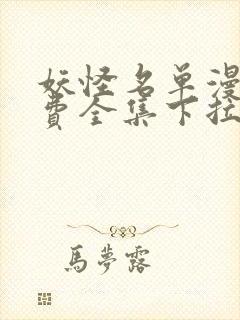 妖怪名单漫
费全集下拉
馬夢露